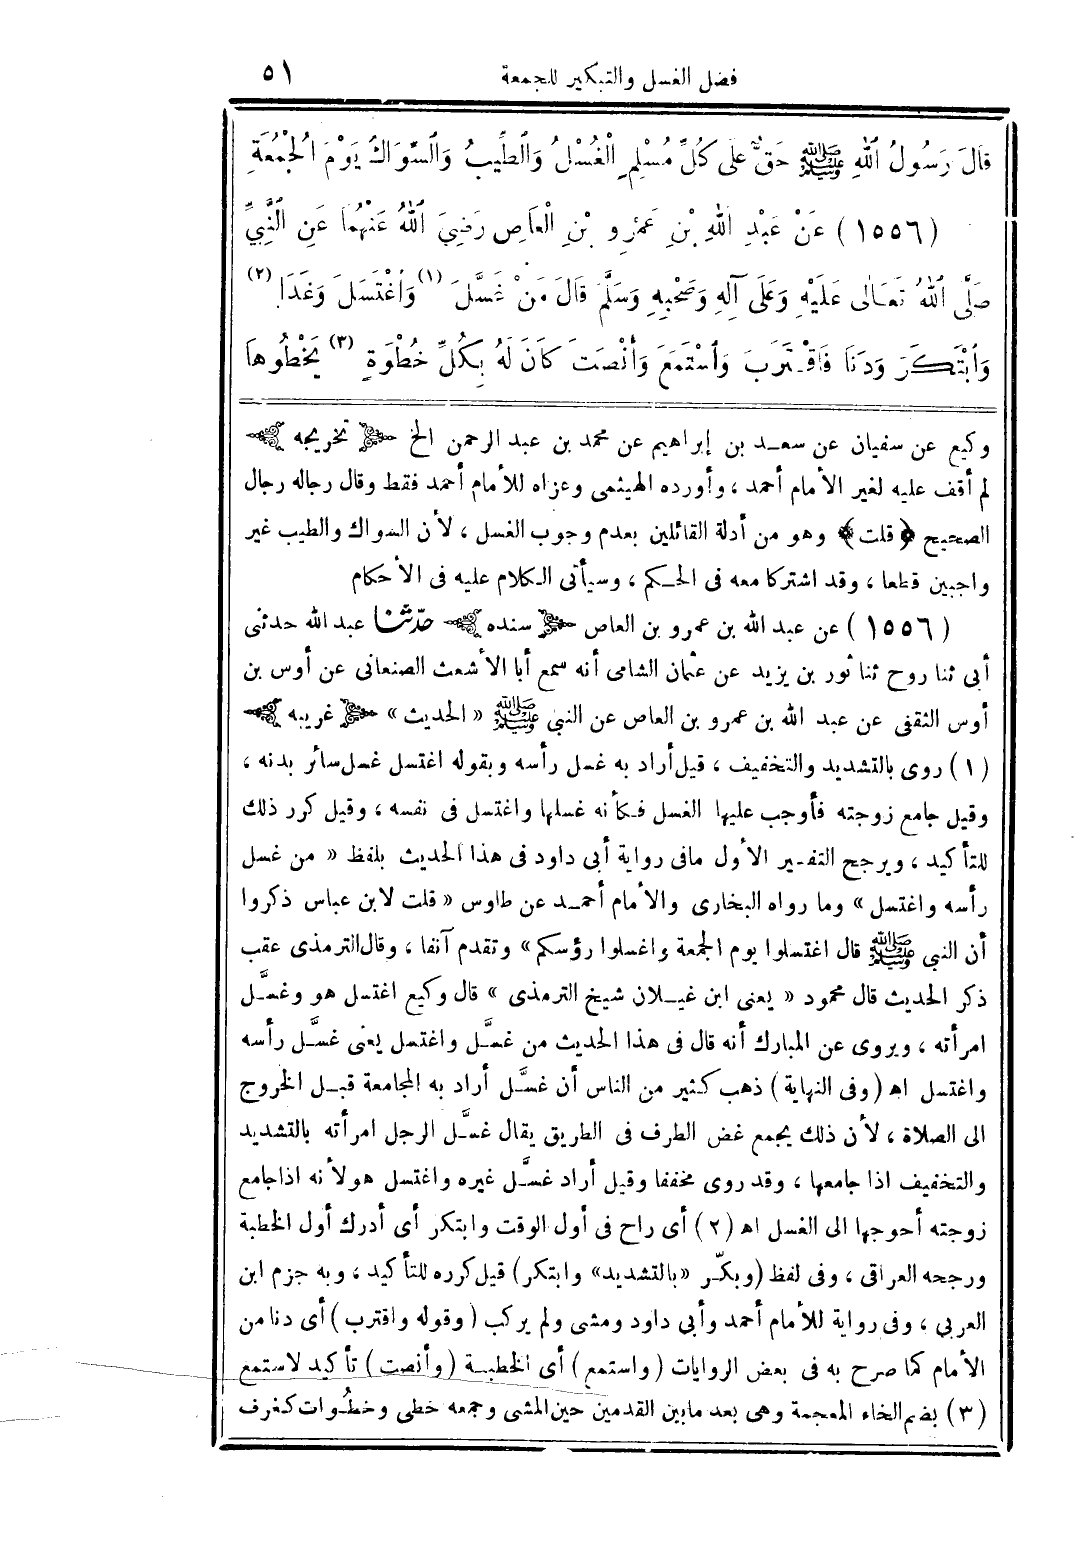 فضل الغسل والتبكير للجمعة ٥١
قَالَ رَسُولُ اللهِ ﷺ حَقٌّ عَلَى كُلِّ مُسْلِمٍ الْغُسْلُ وَالطِّيبُ وَالسِّوَاكُ يَوْمَ الْجُمُعَةِ
(١٥٥٦) عَنْ عَبْدِ اللهِ بْنِ عَمْرِو بْنِ الْعَاصِ رَضِيَ اللهُ عَنْهُمَا عَنِ النَّبِيِّ
صَلَّى اللهُ تَعَالَى عَلَيْهِ وَعَلَى آلِهِ وَصَحْبِهِ وَسَلَّمَ قَالَ مَنْ غَسَّلَ (١) وَاغْتَسَلَ وَغَدَا (٢)
وَابْتَكَرَ وَدَنَا فَاقْتَرَبَ وَاسْتَمَعَ وَأَنْصَتَ كَانَ لَهُ بِكُلِّ خُطْوَةٍ (٣) يَخْطُوهَا
وكيع عن سفيان عن سعد بن إبراهيم عن محمد بن عبد الرحمن الخ ﴿تخريجه﴾
لم أقف عليه لغير الأمام أحمد ، وأورده الهيثمى وعزاه للأمام أحمد فقط وقال رجاله رجال
الصحيح ﴿قلت﴾ وهو من أدلة القائلين بعدم وجوب الغسل ، لأن السواك والطيب غير
واجبين قطعا ، وقد اشتركا معه فى الحكم ، وسيأتى الكلام عليه فى الأحكام
(١٥٥٦) عن عبد الله بن عمرو بن العاص ﴿سنده﴾ حدّثنا عبد الله حدثنى
أبى ثنا روح ثنا ثور بن يزيد عن عثمان الشامى أنه سمع أبا الأشعث الصنعانى عن أوس بن
أوس الثقفى عن عبد الله بن عمرو بن العاص عن النبى ﷺ « الحديث » ﴿غريبه﴾
(١) روى بالتشديد والتخفيف ، قيل أراد به غسل رأسه وبقوله اغتسل غسل سائر بدنه ،
وقيل جامع زوجته فأوجب عليها الغسل فكأنه غسلها واغتسل فى نفسه ، وقيل كرر ذلك
للتأكيد ، ويرجح التفسير الأول مافى رواية أبى داود فى هذا الحديث بلفظ « من غسل
رأسه واغتسل » وما رواه البخارى والأمام أحمد عن طاوس « قلت لابن عباس ذكروا
أن النبى ﷺ قال اغتسلوا يوم الجمعة واغسلوا رؤسكم » وتقدم آنفا ، وقال الترمذى عقب
ذكر الحديث قال محمود « يعنى ابن غيلان شيخ الترمذى » قال وكيع اغتسل هو وغسَّل
امرأته ، ويروى عن المبارك أنه قال فى هذا الحديث من غسَّل واغتسل يعنى غسَّل رأسه
واغتسل اه (وفى النهاية) ذهب كثير من الناس أن غسَّل أراد به المجامعة قبل الخروج
الى الصلاة ، لأن ذلك يجمع غض الطرف فى الطريق يقال غسَّل الرجل امرأته بالتشديد
والتخفيف اذا جامعها ، وقد روى مخففا وقيل أراد غسَّل غيره واغتسل هو لأنه اذا جامع
زوجته أحوجها الى الغسل اه (٢) أى راح فى أول الوقت وابتكر أى أدرك أول الخطبة
ورجحه العراقى ، وفى لفظ (وبكّر «بالتشديد» وابتكر) قيل كرره للتأكيد ، وبه جزم ابن
العربي ، وفى رواية للأمام أحمد وأبي داود ومشى ولم يركب (وقوله واقترب) أى دنا من
الأمام كما صرح به فى بعض الروايات (واستمع) أى الخطبة (وأنصت) تأكيد لاستمع
(٣) بضم الخاء المعجمة وهى بعد مابين القدمين حين المشى وجمعه خطى وخطُوات كغرف